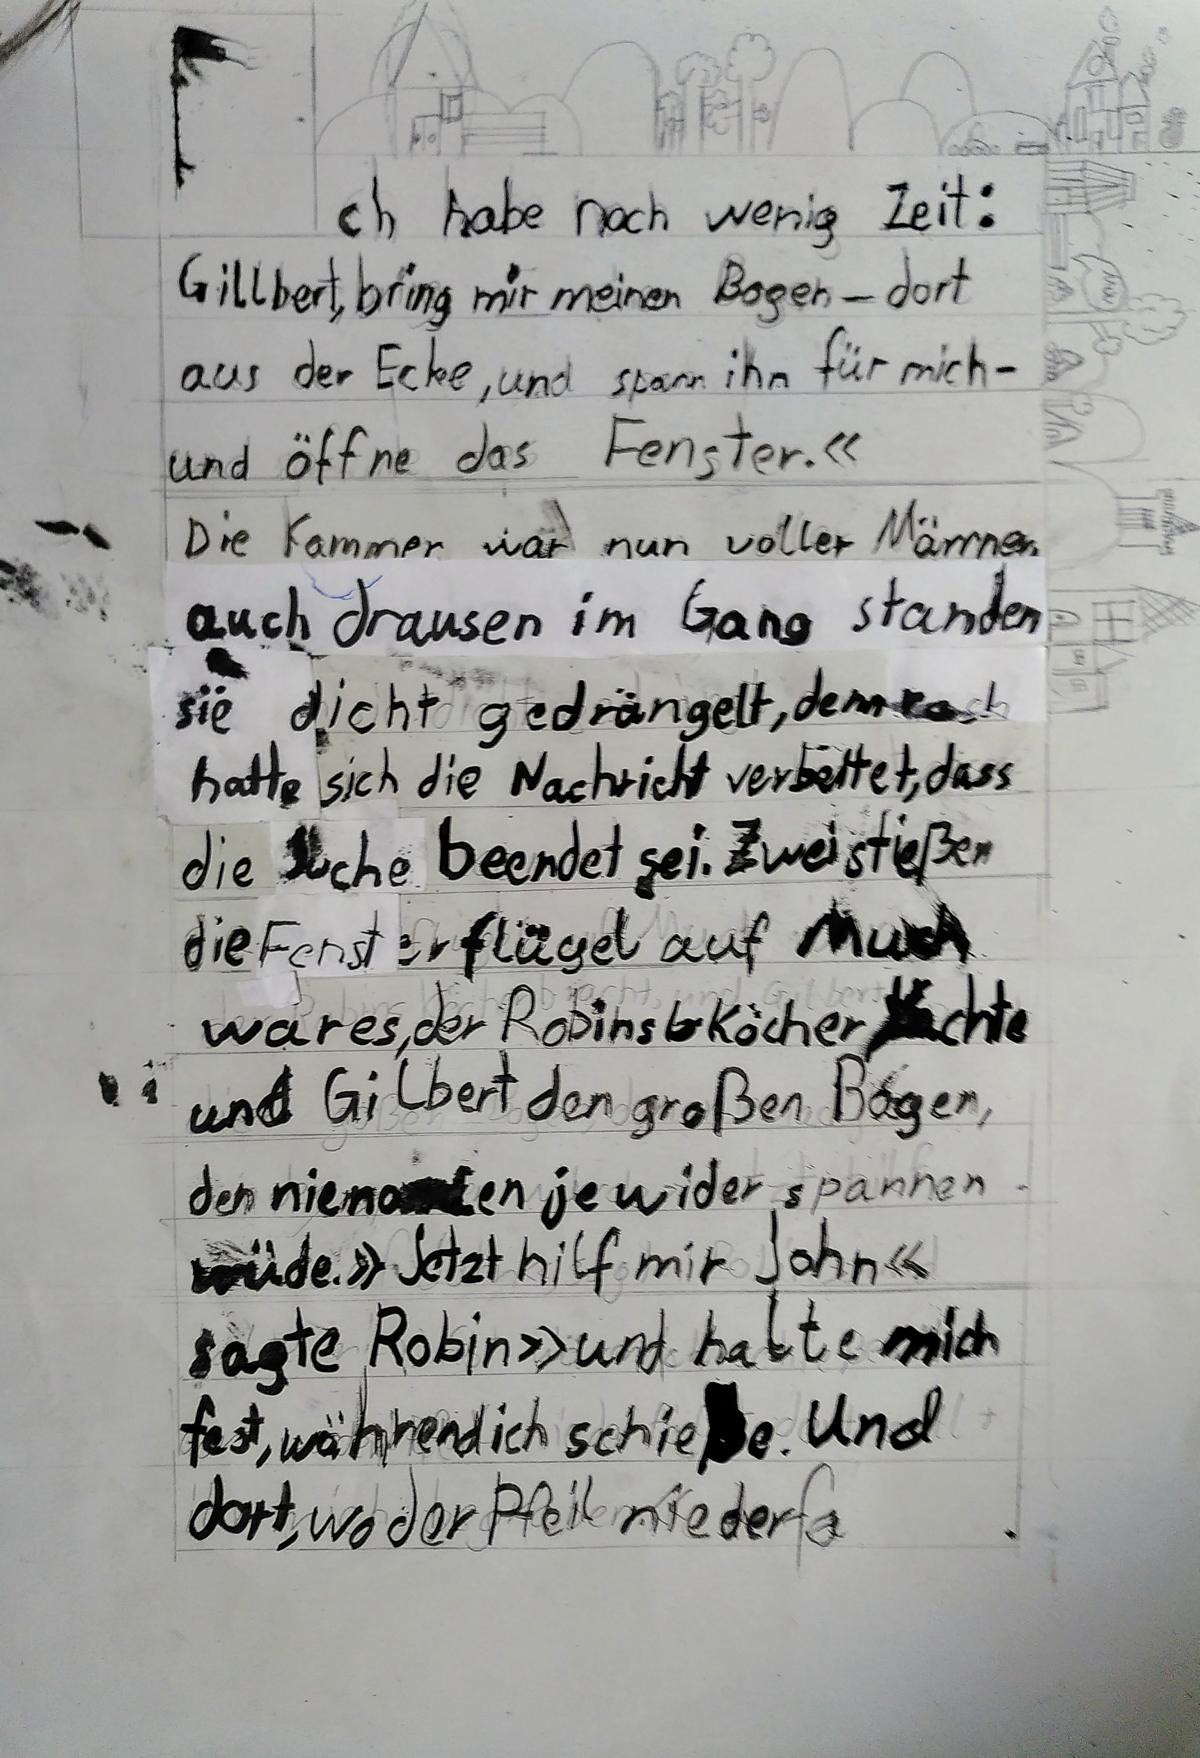 Ich habe noch wenig Zeit:
Gillbert, bring mir meinen Bogen – dort
aus der Ecke, und spann ihn für mich –
und öffne das Fenster.«
Die Kammer war nun voller Männer
auch drausen im Gang standen
sie dicht gedrängelt, denn rasch
hatte sich die Nachricht verbeitet, dass
die Suche beendet sei. Zwei stießen
die Fensterflügel auf Much
war es, der Robins Köcher
und Gilbert den großen Bogen,
den je wider spannen
würde. » Jetzt hilf mir John«
sagte Robin » und halte mich
fest, während ich schieße. Und
dort, wo der Pfeil niederfa